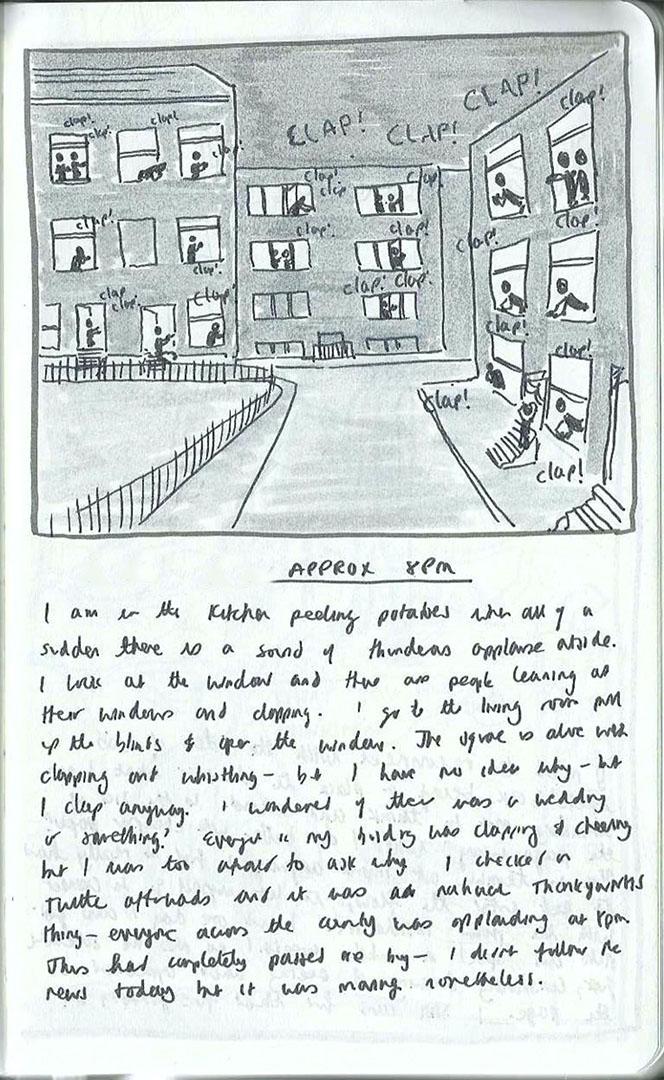 CLAP!
CLAP!
CLAP!
clap!
clap!
clap!
clap!
clap!
clap!
clap
clap!
clap!
clap!
clap!
clap!
clap!
clap!
clap!
clap
clap!
clap!
clap!
clap.
clap!
clap
clap.
clap!
clap!
clap!
clap!
APPROX 8PM
I am in the kitchen peeling potatoes when all of a
sudden there is a sound of thunderous applause outside.
I look at the window and there are people leaning out
their windows and clapping. I go to the living room pull
up the blinds & open the window. The square is alive with
clapping and whistling – but I have no idea why – but
I clap anyway. I wondered if there was a wedding
or something? Everyone in my building was clapping & cheering
but I was too afraid to ask why. I checked on
Twitter afterwards and it was a national
thing – everyone across the country was applauding at 8pm.
This had completely passed me by – I didn't follow the
news today but it was moving nonetheless.